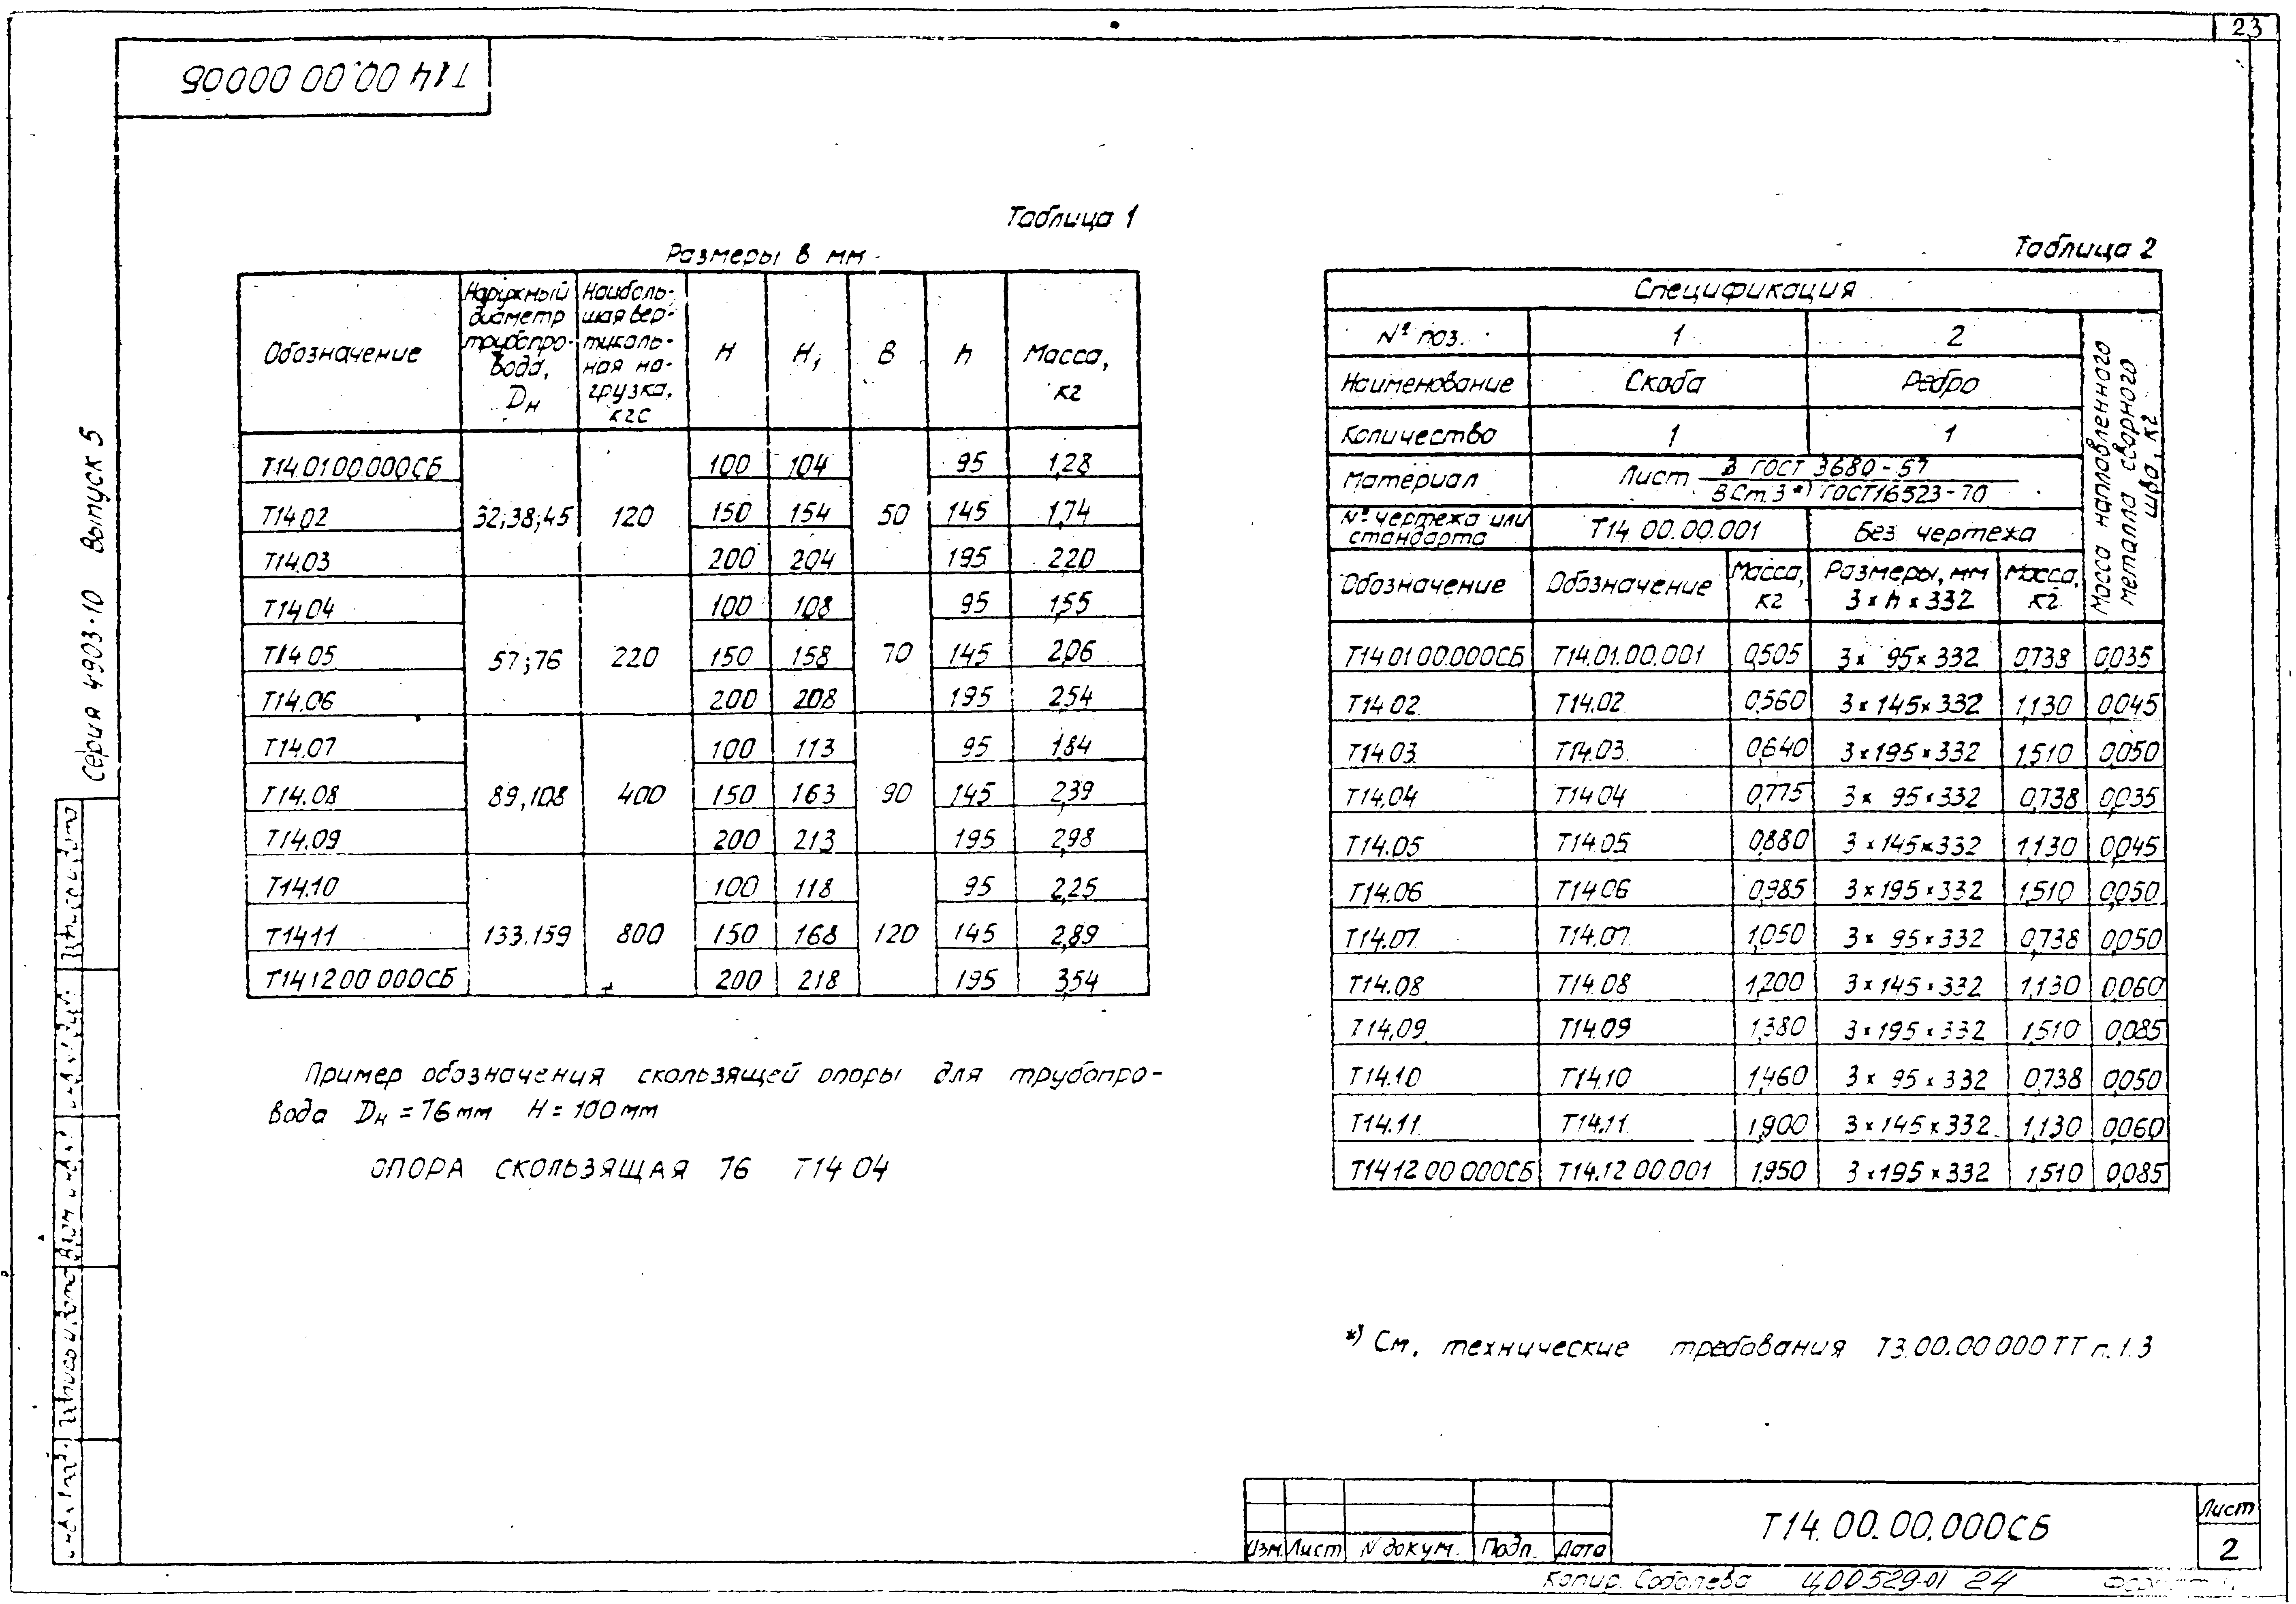 23
Т14 00.00 000СБ
Серия 4903-10 Выпуск 5
Таблица 1
Размеры в мм
Обозначение | Наружный диаметр трубопро-вода, Dн | Наиболь-шая вер-тикаль-ная на-грузка, кгс | H | H₁ | B | h | Масса, кг
Т14.01 00.000СБ | 32;38;45 | 120 | 100 | 104 | 50 | 95 | 1,28
Т14.02 | 150 | 154 | 145 | 1,74
Т14.03 | 200 | 204 | 195 | 2,20
Т14.04 | 57;76 | 220 | 100 | 108 | 70 | 95 | 1,55
Т14.05 | 150 | 158 | 145 | 2,06
Т14.06 | 200 | 208 | 195 | 2,54
Т14.07 | 89,108 | 400 | 100 | 113 | 90 | 95 | 1,84
Т14.08 | 150 | 163 | 145 | 2,39
Т14.09 | 200 | 213 | 195 | 2,98
Т14.10 | 133.159 | 800 | 100 | 118 | 120 | 95 | 2,25
Т14.11 | 150 | 168 | 145 | 2,89
Т14.12 00 000СБ | 200 | 218 | 195 | 3,54
Пример обозначения скользящей опоры для трубопро-
вода Dн = 76 мм H = 100 мм
ОПОРА СКОЛЬЗЯЩАЯ 76 Т14 04
Таблица 2
Спецификация
№ поз. | 1 | 2 | Масса наплавленного металла сварного шва, кг
Наименование | Скоба | Ребро
Количество | 1 | 1
Материал | Лист 3 ГОСТ 3680-57 / ВСт.3 *) ГОСТ16523-70
№ чертежа или стандарта | Т14 00.00.001 | Без чертежа
Обозначение | Обозначение | Масса, кг | Размеры, мм 3 × h × 332 | Масса, кг
Т14.01 00.000СБ | Т14.01.00.001 | 0,505 | 3 × 95 × 332 | 0,738 | 0,035
Т14.02 | Т14.02 | 0,560 | 3 × 145 × 332 | 1,130 | 0,045
Т14.03 | Т14.03 | 0,640 | 3 × 195 × 332 | 1,510 | 0,050
Т14.04 | Т14.04 | 0,775 | 3 × 95 × 332 | 0,738 | 0,035
Т14.05 | Т14.05 | 0,880 | 3 × 145 × 332 | 1,130 | 0,045
Т14.06 | Т14.06 | 0,985 | 3 × 195 × 332 | 1,510 | 0,050
Т14.07 | Т14.07 | 1,050 | 3 × 95 × 332 | 0,738 | 0,050
Т14.08 | Т14.08 | 1,200 | 3 × 145 × 332 | 1,130 | 0,060
Т14.09 | Т14.09 | 1,380 | 3 × 195 × 332 | 1,510 | 0,085
Т14.10 | Т14.10 | 1,460 | 3 × 95 × 332 | 0,738 | 0,050
Т14.11 | Т14.11 | 1,900 | 3 × 145 × 332 | 1,130 | 0,060
Т14.12 00 000СБ | Т14.12 00.001 | 1,950 | 3 × 195 × 332 | 1,510 | 0,085
*) См. технические требования Т3.00.00 000 ТТ п.1.3
Изм. Лист N докум. Подп. Дата
Т14.00.00.000СБ
Лист
2
Копир. Соболева Ц00529-01 24